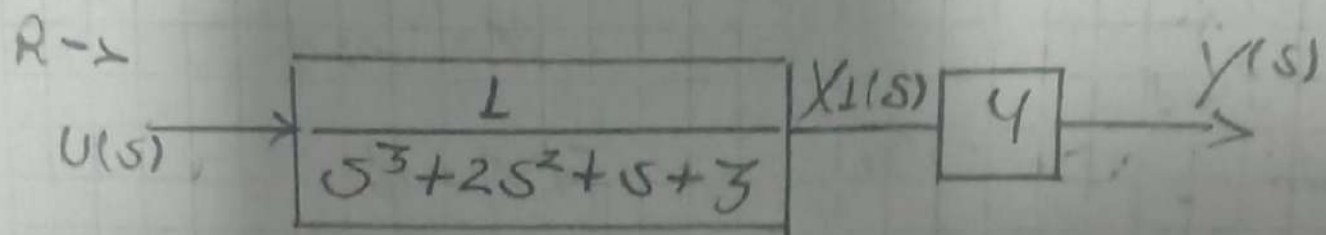 R->
U(s)
1
s³+2s²+s+3
X1(s)
4
Y(s)